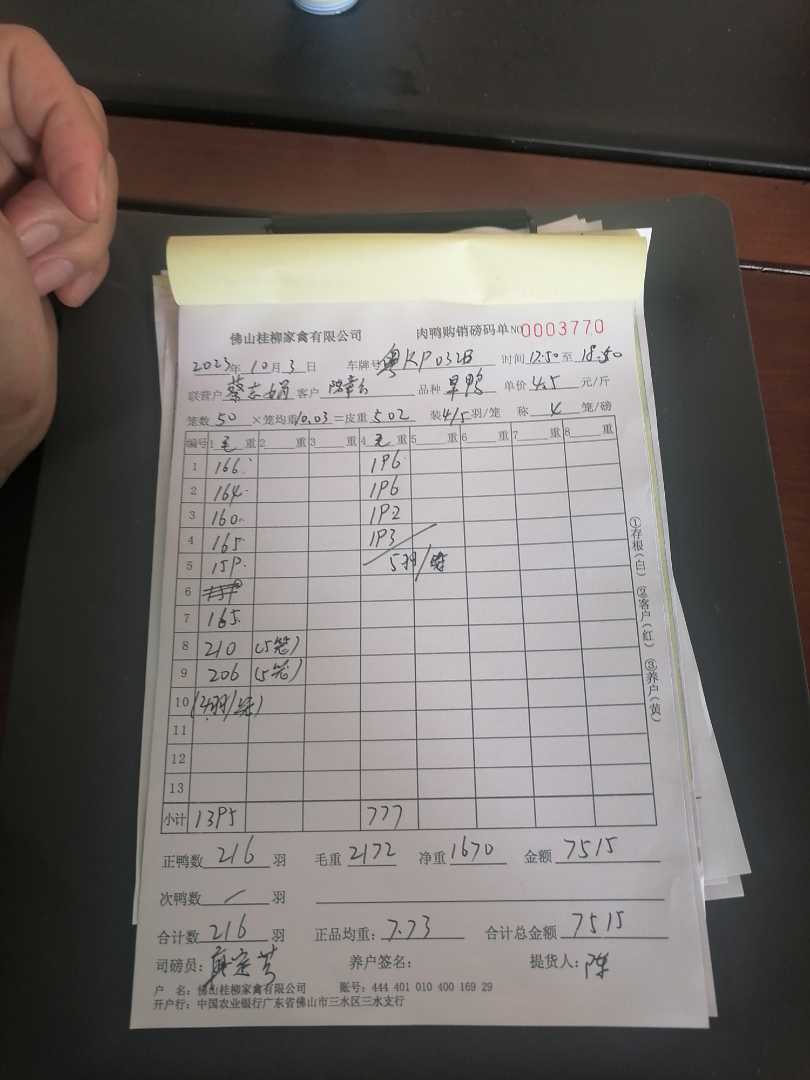 佛山桂柳家禽有限公司 肉鸭购销磅码单 NO 0003770
2023年10月3日 车牌号 粤KP032B 时间 17:50 至 18:50
联营户 蔡志娟 客户 品种 旱鸭 单价 4.5 元/斤
笼数 50 ×笼均重 10.03 =皮重 502 装 4/5 羽/笼 称 4 笼/磅
编号 1 毛 重 2 重 3 重 4 毛 重 5 重 6 重 7 重 8 重
1 166 196
2 164 196
3 160 192
4 165 193
5 159 5羽/笼
6
7 165
8 210 (5笼)
9 206 (5笼)
10 (4羽/笼)
11
12
13
小计 1395 777
正鸭数 216 羽 毛重 2172 净重 1670 金额 7515
次鸭数 / 羽
合计数 216 羽 正品均重: 7.73 合计总金额 7515
司磅员: 养户签名: 提货人: 陈
户 名: 佛山桂柳家禽有限公司 账号: 444 401 010 400 169 29
开户行: 中国农业银行广东省佛山市三水区三水支行
①存根(白) ②客户(红) ③养户(黄)